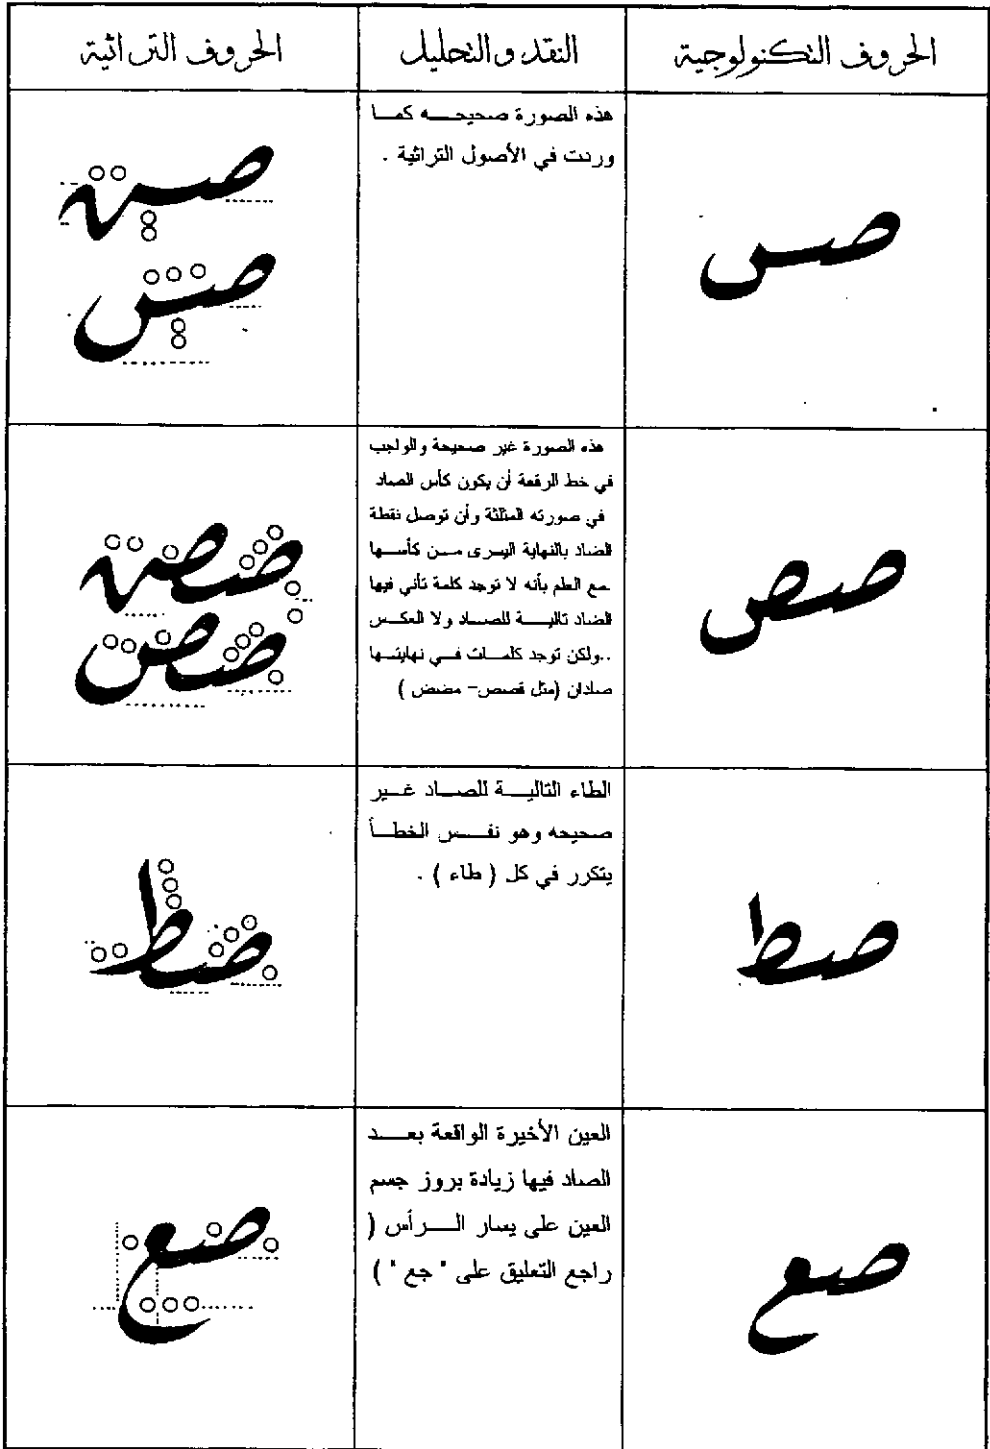 الحروف التكنولوجية
النقد والتحليل
الحروف التراثية
صس
هذه الصورة صحيحه كما
وردت في الأصول التراثية .
صس
صس
صص
هذه الصورة غير صحيحة والواجب
في خط الرقعة أن يكون كأس الصاد
في صورته المثلثة وأن توصل نقطة
الضاد بالنهاية اليسرى من كأسها
مع العلم بأنه لا توجد كلمة تأتي فيها
الضاد تالية للصاد ولا العكس
..ولكن توجد كلمات في نهايتها
صادان (مثل قصص- مضض )
صص
صص
صط
الطاء التالية للصاد غير
صحيحه وهو نفس الخطأ
يتكرر في كل ( طاء ) .
صط
صع
العين الأخيرة الواقعة بعد
الصاد فيها زيادة بروز جسم
العين على يسار الرأس (
راجع التعليق على " جع " )
صع